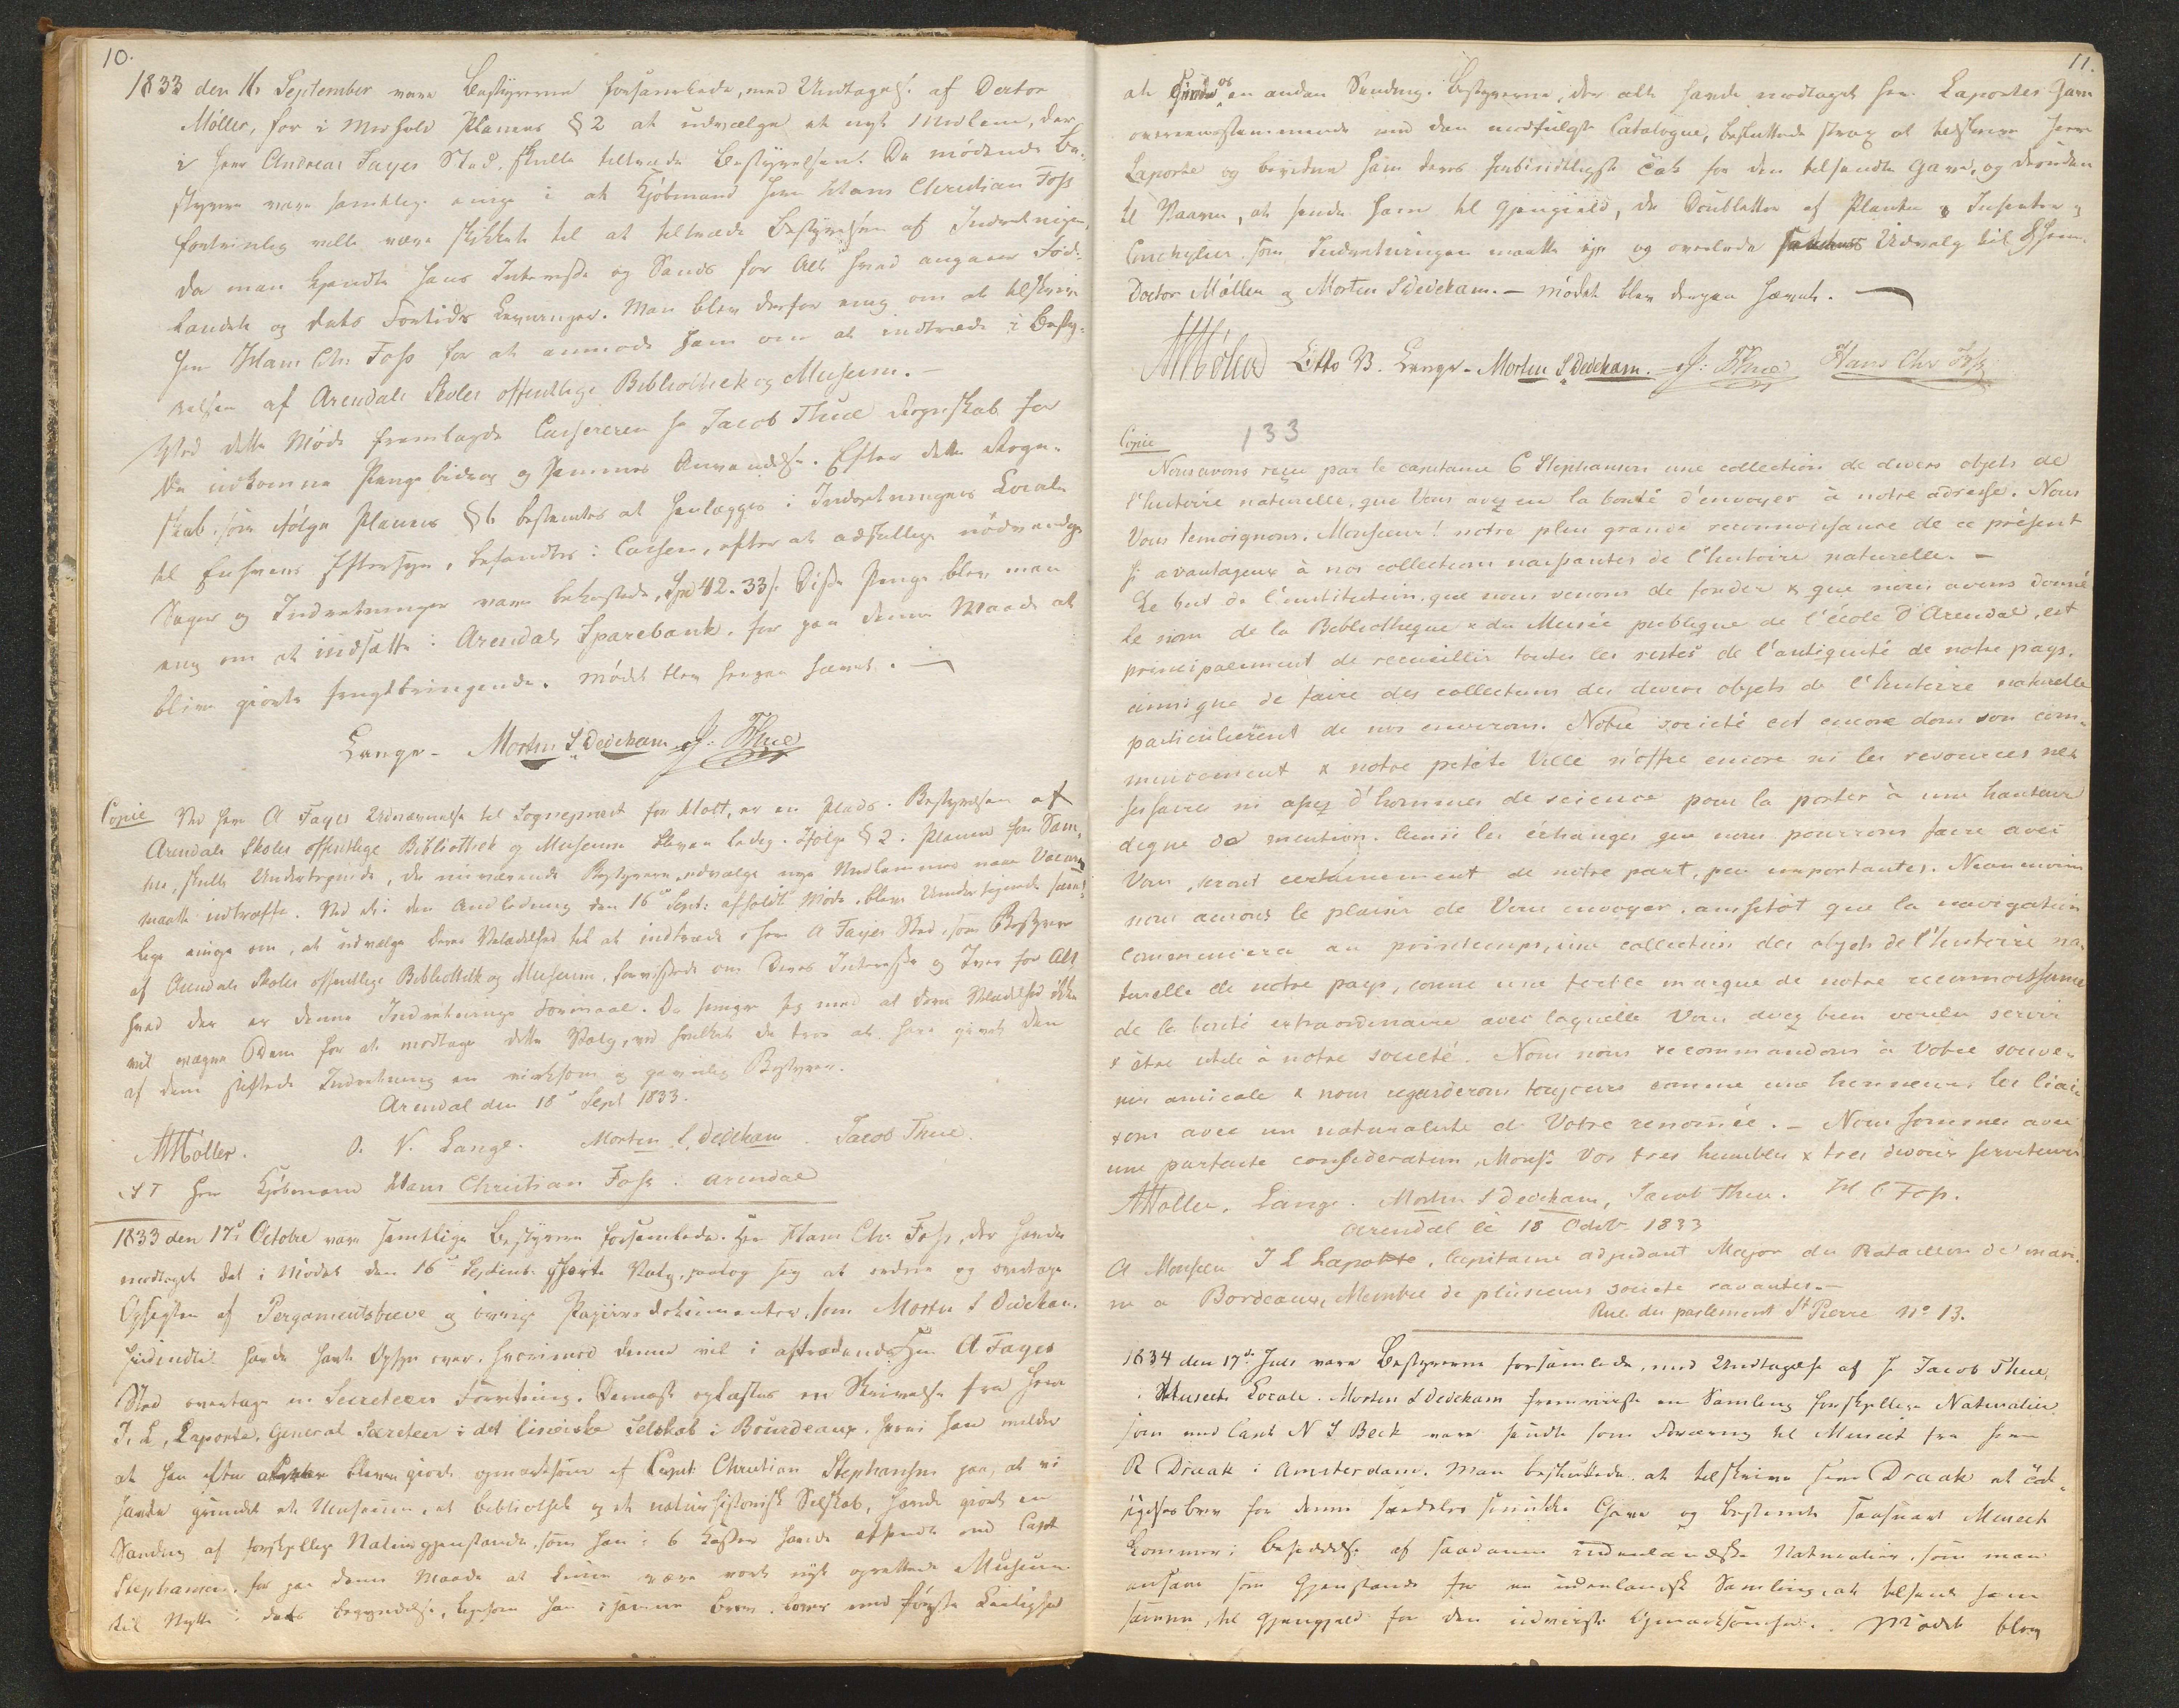 10.
1833 den 16 September vare Bestyrerne forsamlede, med Undtagelse af Doctor
Møller, for i Medhold Planens § 2 at udvælge et nyt Medlem, der
i Herr Andreas Fayes Sted skulle tiltræde Bestyrelsen. De mødende Be-
styrere vare samtlige enige i at Kjøbmand Herr Hans Christian Foss
fortrinlig ville være skikket til at tiltræde Bestyrelsen af Indretningen,
da man kjendte hans Interesse og Sands for Alt hvad angaaer Føde-
landet og dets Fortids Levninger. Man blev derfor enig om at tilskrive
Herr Hans Chr. Foss for at anmode ham om at indtræde i Besty-
relsen af Arendals Skoles offentlige Bibliothek og Museum. –
Ved dette Møde fremlagde Cassereren Hr Jacob Thue Regnskab for
de indkomne Pengebidrag og sammes Anvendelse. Efter dette Regn-
skab, som ifølge Planens § 6 bestemtes at henlægges i Indretningens Locale
til Enhvers Eftersyn, befandtes i Cassen, efter at adskillige nødvendige
Sager og Indretninger vare bekostede, Spd 42. 33 s. Disse Penge blev man
enig om at indsætte i Arendals Sparebank, for paa denne Maade at
blive giorte frugtbringende. Mødet blev herpaa hævet. –
Lange – Morten S Dedekam J. Thue
Copie Ved Herr A Fayes Udnævnelse til Sognepræst for Holt, er en Plads i Bestyrelsen af
Arendals Skoles offentlige Bibliothek og Museum bleven ledig. Ifølge § 2 i Planen for Sam-
me, skulle Undertegnede, de nuværende Bestyrere, udvælge nye Medlemmer naar Vacance
maatte indtræffe. Ved et i den Anledning den 16de Sept: afholdt Møde, bleve Undertegnede samt-
lige enige om, at udvælge Deres Velædelhed til at indtræde i Herr A Fayes Sted, som Bestyrer
af Arendals Skoles offentlige Bibliothek og Museum, forvissede om Deres Interesse og Iver for Alt
hvad der er denne Indretnings Formaal. De smigre sig med at Deres Velædelhed ikke
vil vægre Dem for at modtage dette Valg, ved hvilket de troe at have givet den
af dem stiftede Indretning en virksom og gavnlig Bestyrer.
Arendal den 18de Sept 1833.
AMøller. O. V. Lange. Morten S. Dedekam. Jacob Thue.
S T Herr Kjøbmand Hans Christian Foss i Arendal
1833 den 17de Octobre vare samtlige Bestyrere forsamlede. Hr Hans Chr. Foss, der havde
modtaget det i Mødet den 16de Septemb. skeete Valg, paatog sig at ordne og overtage
Opsigten af Pergamentsbreve og øvrige Papiirsdokumenter, som Morten S Dedekam
hidindtil havde havt Opsyn over, hvorimod denne vil i aftrædende Hr A Fayes
Sted overtage en Secreteers Forretning. Dernæst oplæstes en Skrivelse fra Herr
J. L, Laporte, General Secreteer i det linéiske Selskab i Bourdeaux, hvori han melder
at han efter bleven giort opmærksom af Capt. Christian Stephansen paa, at vi
havde grundet et Museum, et Bibliothek og et naturhistorisk Selskab, havde giort en
Sending af forskjellige Naturgjenstande, som han i 6 Kasser havde afsendt med Capt
Stephansen, for paa denne Maade at kunne være vort nyt oprettede Museum
til Nytte i dets Begyndelse, ligesom han i samme Brev lover med første Leilighed
11.
at sende os en anden Sending. Bestyrerne, der alt havde modtaget Herr Laportes Gave
overeensstemmende med den medfulgte Catalogue, besluttede strax at tilskrive Herr
Laporte og bevidne ham deres forbindtligste Tak for den tilsendte Gave, og desuden
til Vaaren, at sende ham til Gjengield, de Doubletter af Planter & Insecter og
Conchylier, som Indretningen maatte eje og overlode Udvalg til HHerr.
Doctor Møller og Morten S Dedekam. – Mødet blev derpaa hævet. –
AMöller Otto V. Lange – Morten S Dedekam. J: Thue Hans Chr Foss
Copie 133
Nous avons reçu par le capitaine C Stephansen une collection de divers objets de
l'histoire naturelle, que Vous avez eu la bonté d'envoyer à notre adresse. Nous
Vous temoignons, Monsieur! notre plus grande reconnoissance de ce présent
si avantageux à nos collections naissantes de l'histoire naturelle. –
Le but de l'institution, que nous venons de fonder & que nous avons donné
le nom de la Bibliotheque & du Musée publique de l'école d'Arendal, est
principalement de recueillir toutes les restes de l'antiquité de notre pays,
ainsi que de faire des collections des divers objets de l'histoire naturelle
particulièrent de nos environs. Notre societé est encore dans son com-
mencement & notre petite Ville n'offre encore ni les resources nes
sessaires ni assez d'hommes de science pour la porter à une hauteur
digne de mention. Ainsi les échanges que nous pourrons faire avec
Vous, seront certainement de notre part, peu importantes. Neanmoins
nous aurons le plaisir de Vous envoyer, aussitôt que la navigation
commencera au printemps, une collection des objets de l'histoire na-
turelle de notre pays, comme une foible marque de notre reconnoissance
de la bonté extraordinaire avec laquelle Vous avez bien voulu servir
& être utile à notre societé. Nous nous recommandons à Votre souve-
nir amicale & nous regarderons toujours comme une honneur, les liai-
sons avec un naturaliste de Votre renomée. – Nous sommes avec
une parfaite consideration, Mons: Vos tres humbles & tres devoués serviteurs
AMöller. Lange. Morten S Dedekam, Jacob Thue. H C Foss.
Arendal le 18 Octob 1833
A Monsieur J L Laporte, Capitaine adjudant Major du Bataillon de mari-
ne a Bordeaux, Membre de plusieurs societe savantes. –
Rue du parlement St Pierre No 13.
1834 den 17de Juli vare Bestyrerne forsamlede, med Undtagelse af Hr Jacob Thue,
i Museets Locale. Morten S Dedekam fremviiste en Samling forskjellige Naturalier
som med Capt N S Beck vare sendte som Foræring til Museet fra Herr
R Draak i Amsterdam. Man besluttede at tilskrive Herr Draak et Tak-
sigelsesbrev for denne særdeles smukke Gave og bestemte saasnart Museet
kommer i Besiddelse af saadanne indenlandske Naturalier, som man
ansaae som Gjenstande for en udenlandsk Samling, at tilsende ham
samme, til Gjengjeld for den udviiste Opmærksomhed. Mødet blev